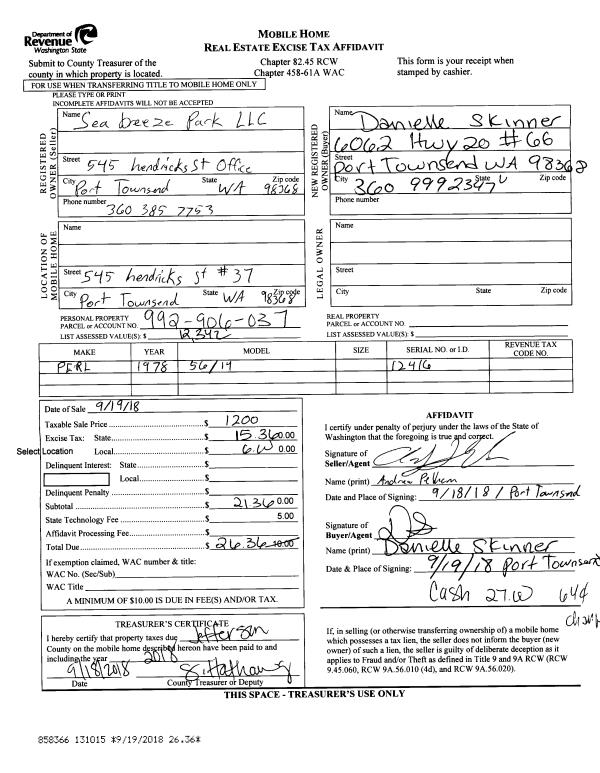 Department of
Revenue
Washington State
MOBILE HOME
REAL ESTATE EXCISE TAX AFFIDAVIT
Submit to County Treasurer of the
county in which property is located.
Chapter 82.45 RCW
Chapter 458-61A WAC
This form is your receipt when
stamped by cashier.
FOR USE WHEN TRANSFERRING TITLE TO MOBILE HOME ONLY
PLEASE TYPE OR PRINT
INCOMPLETE AFFIDAVITS WILL NOT BE ACCEPTED
REGISTERED
OWNER (Seller)
Name Sea breeze Park LLC
Street 545 hendricks St Office
City Port Townsend State WA Zip code 98368
Phone number
360 385 7753
NEW REGISTERED
OWNER (Buyer)
Name Danielle Skinner
6062 Hwy 20 #66
Street Port Townsend WA 98368
City State Zip code
360 9992347
Phone number
LOCATION OF
MOBILE HOME
Name
Street 545 hendricks St #37
City Port Townsend State WA Zip code 98368
LEGAL OWNER
Name
Street
City State Zip code
PERSONAL PROPERTY
PARCEL or ACCOUNT NO. 992-906-037
LIST ASSESSED VALUE(S): $ 12,342
REAL PROPERTY
PARCEL or ACCOUNT NO.
LIST ASSESSED VALUE(S): $
MAKE YEAR MODEL SIZE SERIAL NO. or I.D. REVENUE TAX CODE NO.
PERL 1978 56/14 12416
Date of Sale 9/19/18
Taxable Sale Price $ 1200
Excise Tax: State $ 15.36 0.00
Select Location Local $ 6.00 0.00
Delinquent Interest: State $
Local $
Delinquent Penalty $
Subtotal $ 21.36 0.00
State Technology Fee $ 5.00
Affidavit Processing Fee $
Total Due $ 26.36 10.00
If exemption claimed, WAC number & title:
WAC No. (Sec/Sub)
WAC Title
A MINIMUM OF $10.00 IS DUE IN FEE(S) AND/OR TAX.
AFFIDAVIT
I certify under penalty of perjury under the laws of the State of
Washington that the foregoing is true and correct.
Signature of
Seller/Agent
Name (print) Andrea Pelham
Date and Place of Signing: 9/18/18 / Port Townsend
Signature of
Buyer/Agent
Name (print) Danielle Skinner
Date & Place of Signing: 9/19/18 Port Townsend
Cash 27.00 64¢
TREASURER'S CERTIFICATE
I hereby certify that property taxes due Jefferson
County on the mobile home described hereon have been paid to and
including the year 2018
9/18/2018 S. Hathaway
Date County Treasurer or Deputy
If, in selling (or otherwise transferring ownership of) a mobile home
which possesses a tax lien, the seller does not inform the buyer (new
owner) of such a lien, the seller is guilty of deliberate deception as it
applies to Fraud and/or Theft as defined in Title 9 and 9A RCW (RCW
9.45.060, RCW 9A.56.010 (4d), and RCW 9A.56.020).
THIS SPACE - TREASURER'S USE ONLY
858366 131015 *9/19/2018 26.36*